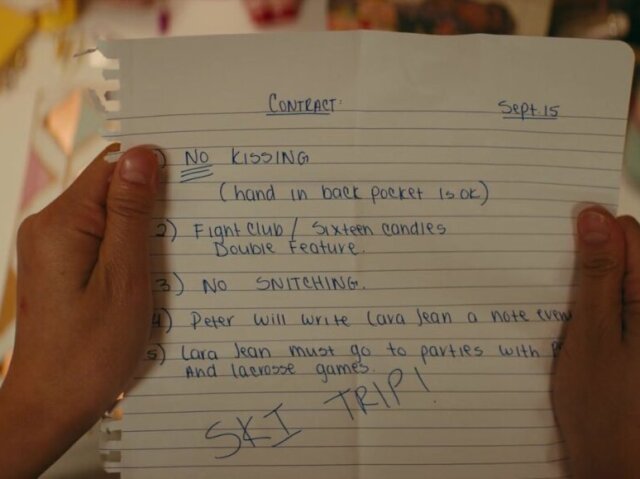 CONTRACT: Sept. 15
1) NO KISSING
(hand in back pocket is ok)
2) Fight Club / Sixteen candles
Double Feature.
3) NO SNITCHING.
4) Peter will write Lara Jean a note
5) Lara Jean must go to parties with
And lacrosse games.
SKI TRIP!